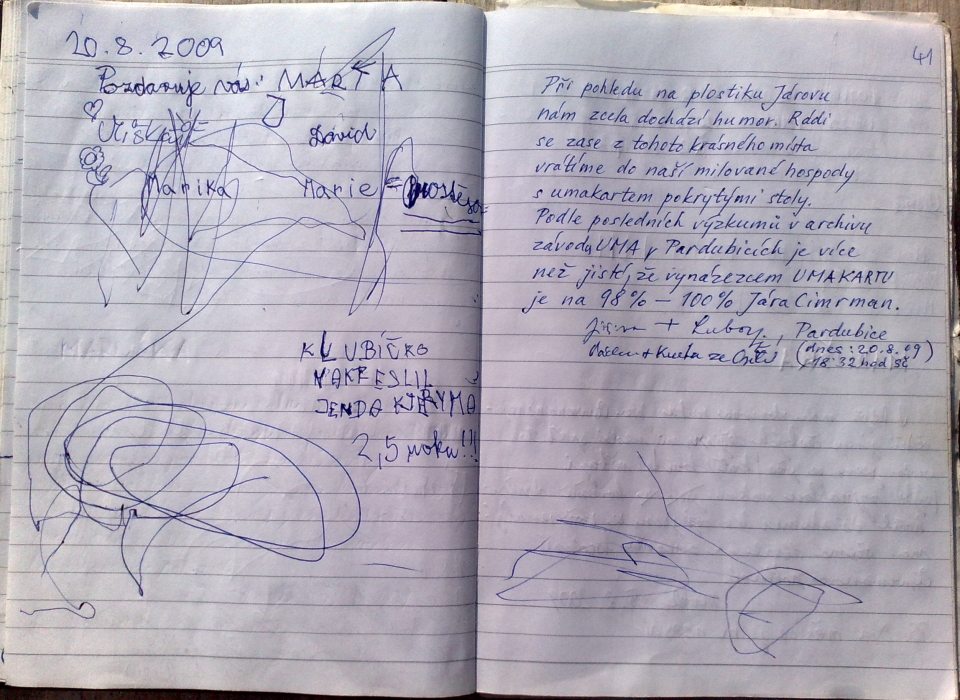 20.8.2009
Pozdravuje vás: MARTA
David
Marika Marie =
KLUBÍČKO
NAKRESLIL
JENDA
2,5 roku!!!
41
Při pohledu na plastiku Járovu
nám zcela dochází humor. Rádi
se zase z tohoto krásného místa
vrátíme do naší milované hospody
s umakartem pokrytými stoly.
Podle posledních výzkumů v archivu
závodu UMA v Pardubicích je více
než jisté, že vynálezcem UMAKARTU
je na 98% – 100% Jára Cimrman.
+ Luboš, Pardubice
+ Květa ze (dnes: 20.8.09)
18:32 hod